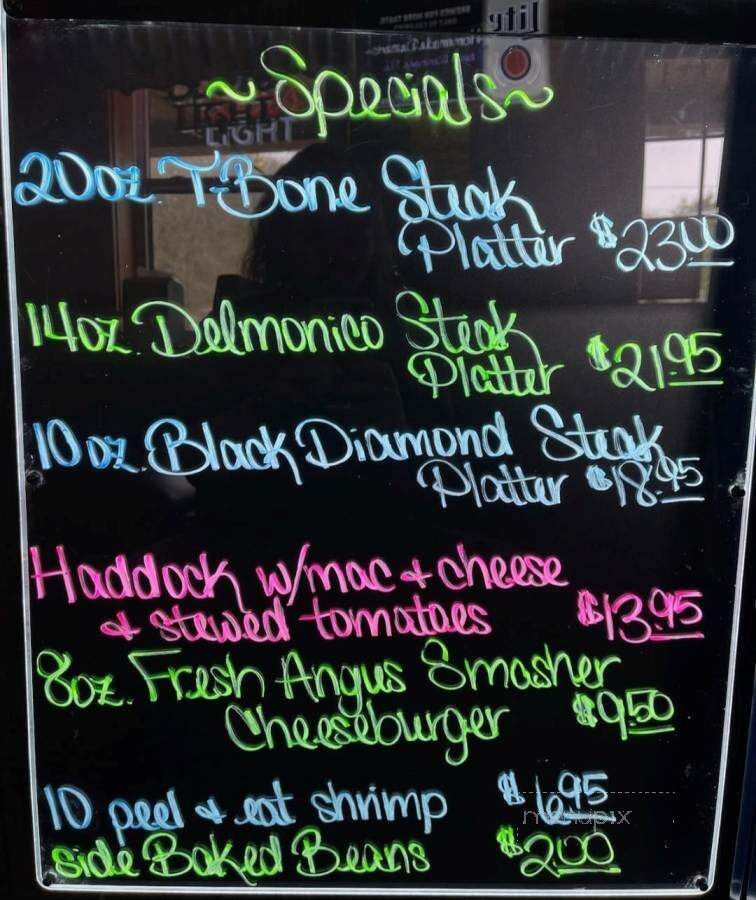 Lite
~Specials~
LIGHT
20oz. T-Bone Steak
Platter $23.00
14oz. Delmonico Steak
Platter $21.95
10oz. Black Diamond Steak
Platter $18.95
Haddock w/mac & cheese
& stewed tomatoes $13.95
8oz. Fresh Angus Smasher
Cheeseburger $9.50
10 peel & eat shrimp $6.95
menupix
side Baked Beans $2.00